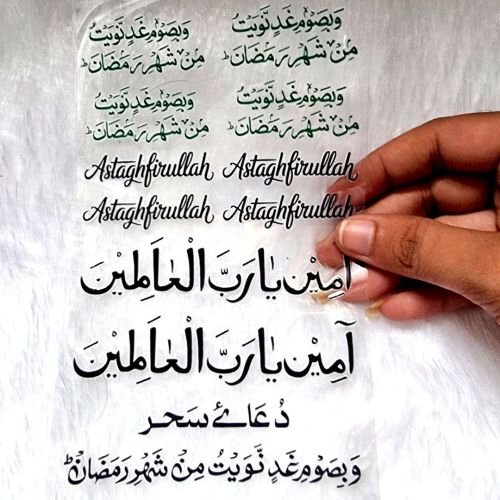 وَبِصَوْمِ غَدٍ نَّوَيْتُ وَبِصَوْمِ غَدٍ نَّوَيْتُ
مِنْ شَهْرِ رَمَضَانَ ؕ مِنْ شَهْرِ رَمَضَانَ ؕ
وَبِصَوْمِ غَدٍ نَّوَيْتُ وَبِصَوْمِ غَدٍ نَّوَيْتُ
مِنْ شَهْرِ رَمَضَانَ ؕ مِنْ شَهْرِ رَمَضَانَ ؕ
Astaghfirullah Astaghfirullah
Astaghfirullah Astaghfirullah
آمِیْن یَا رَبَّ الْعٰالَمِیْنَ
آمِیْن یَا رَبَّ الْعٰالَمِیْنَ
دُعَائے سَحر
وَبِصَوْمِ غَدٍ نَّوَيْتُ مِنْ شَهْرِ رَمَضَانَ ؕ